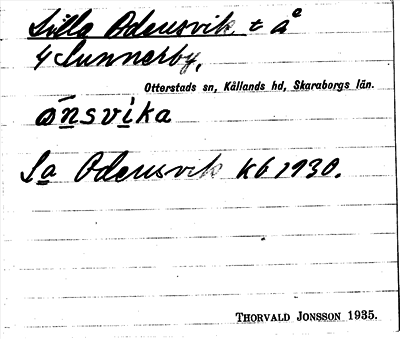 Lilla Odensvik t å
y Sunnerby,
Otterstads sn, Kållands hd, Skaraborgs län.
ónsvika
La Odensvik Kb 1930.
THORVALD JONSSON 1935.